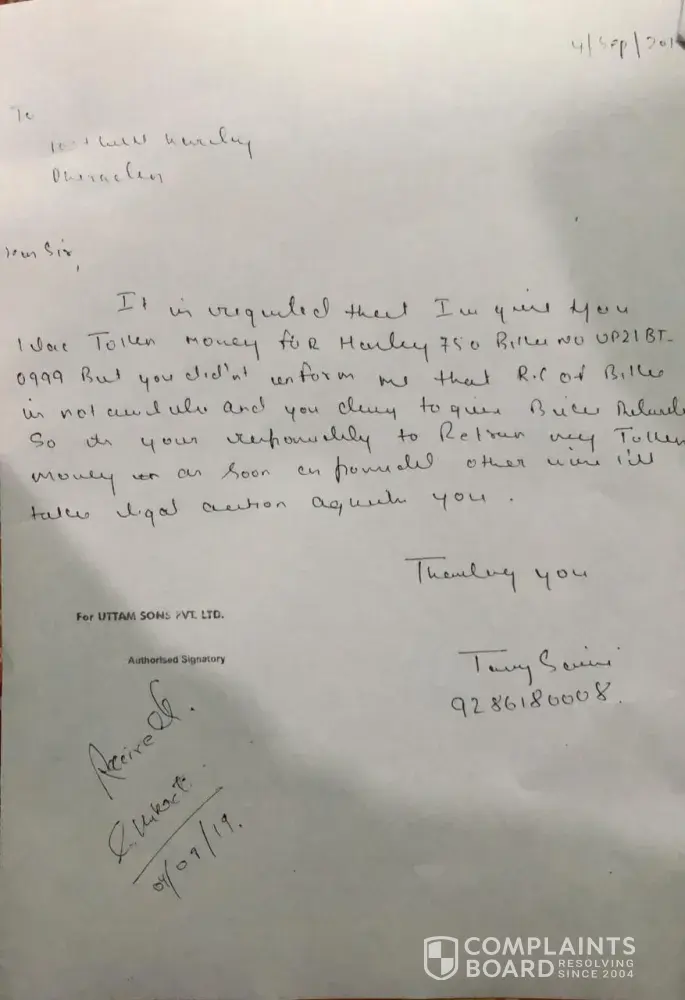 4/Sep/201
To
Harley
Dehradun
Dear Sir,
It is requited that I'm give you
1 lac Token money foR Harley 750 Bike NO UP21BT-
0999 But you didn't enform me that R.C of Bike
is not and you deny to give Bike
So its your responsibility to Retrun my Token
money as soon as other wise i'll
take legal action you.
Thanking you
For UTTAM SONS PVT. LTD.
Authorised Signatory
9286180008.
Received.
04/09/19.
COMPLAINTS
BOARD RESOLVING
SINCE 2004